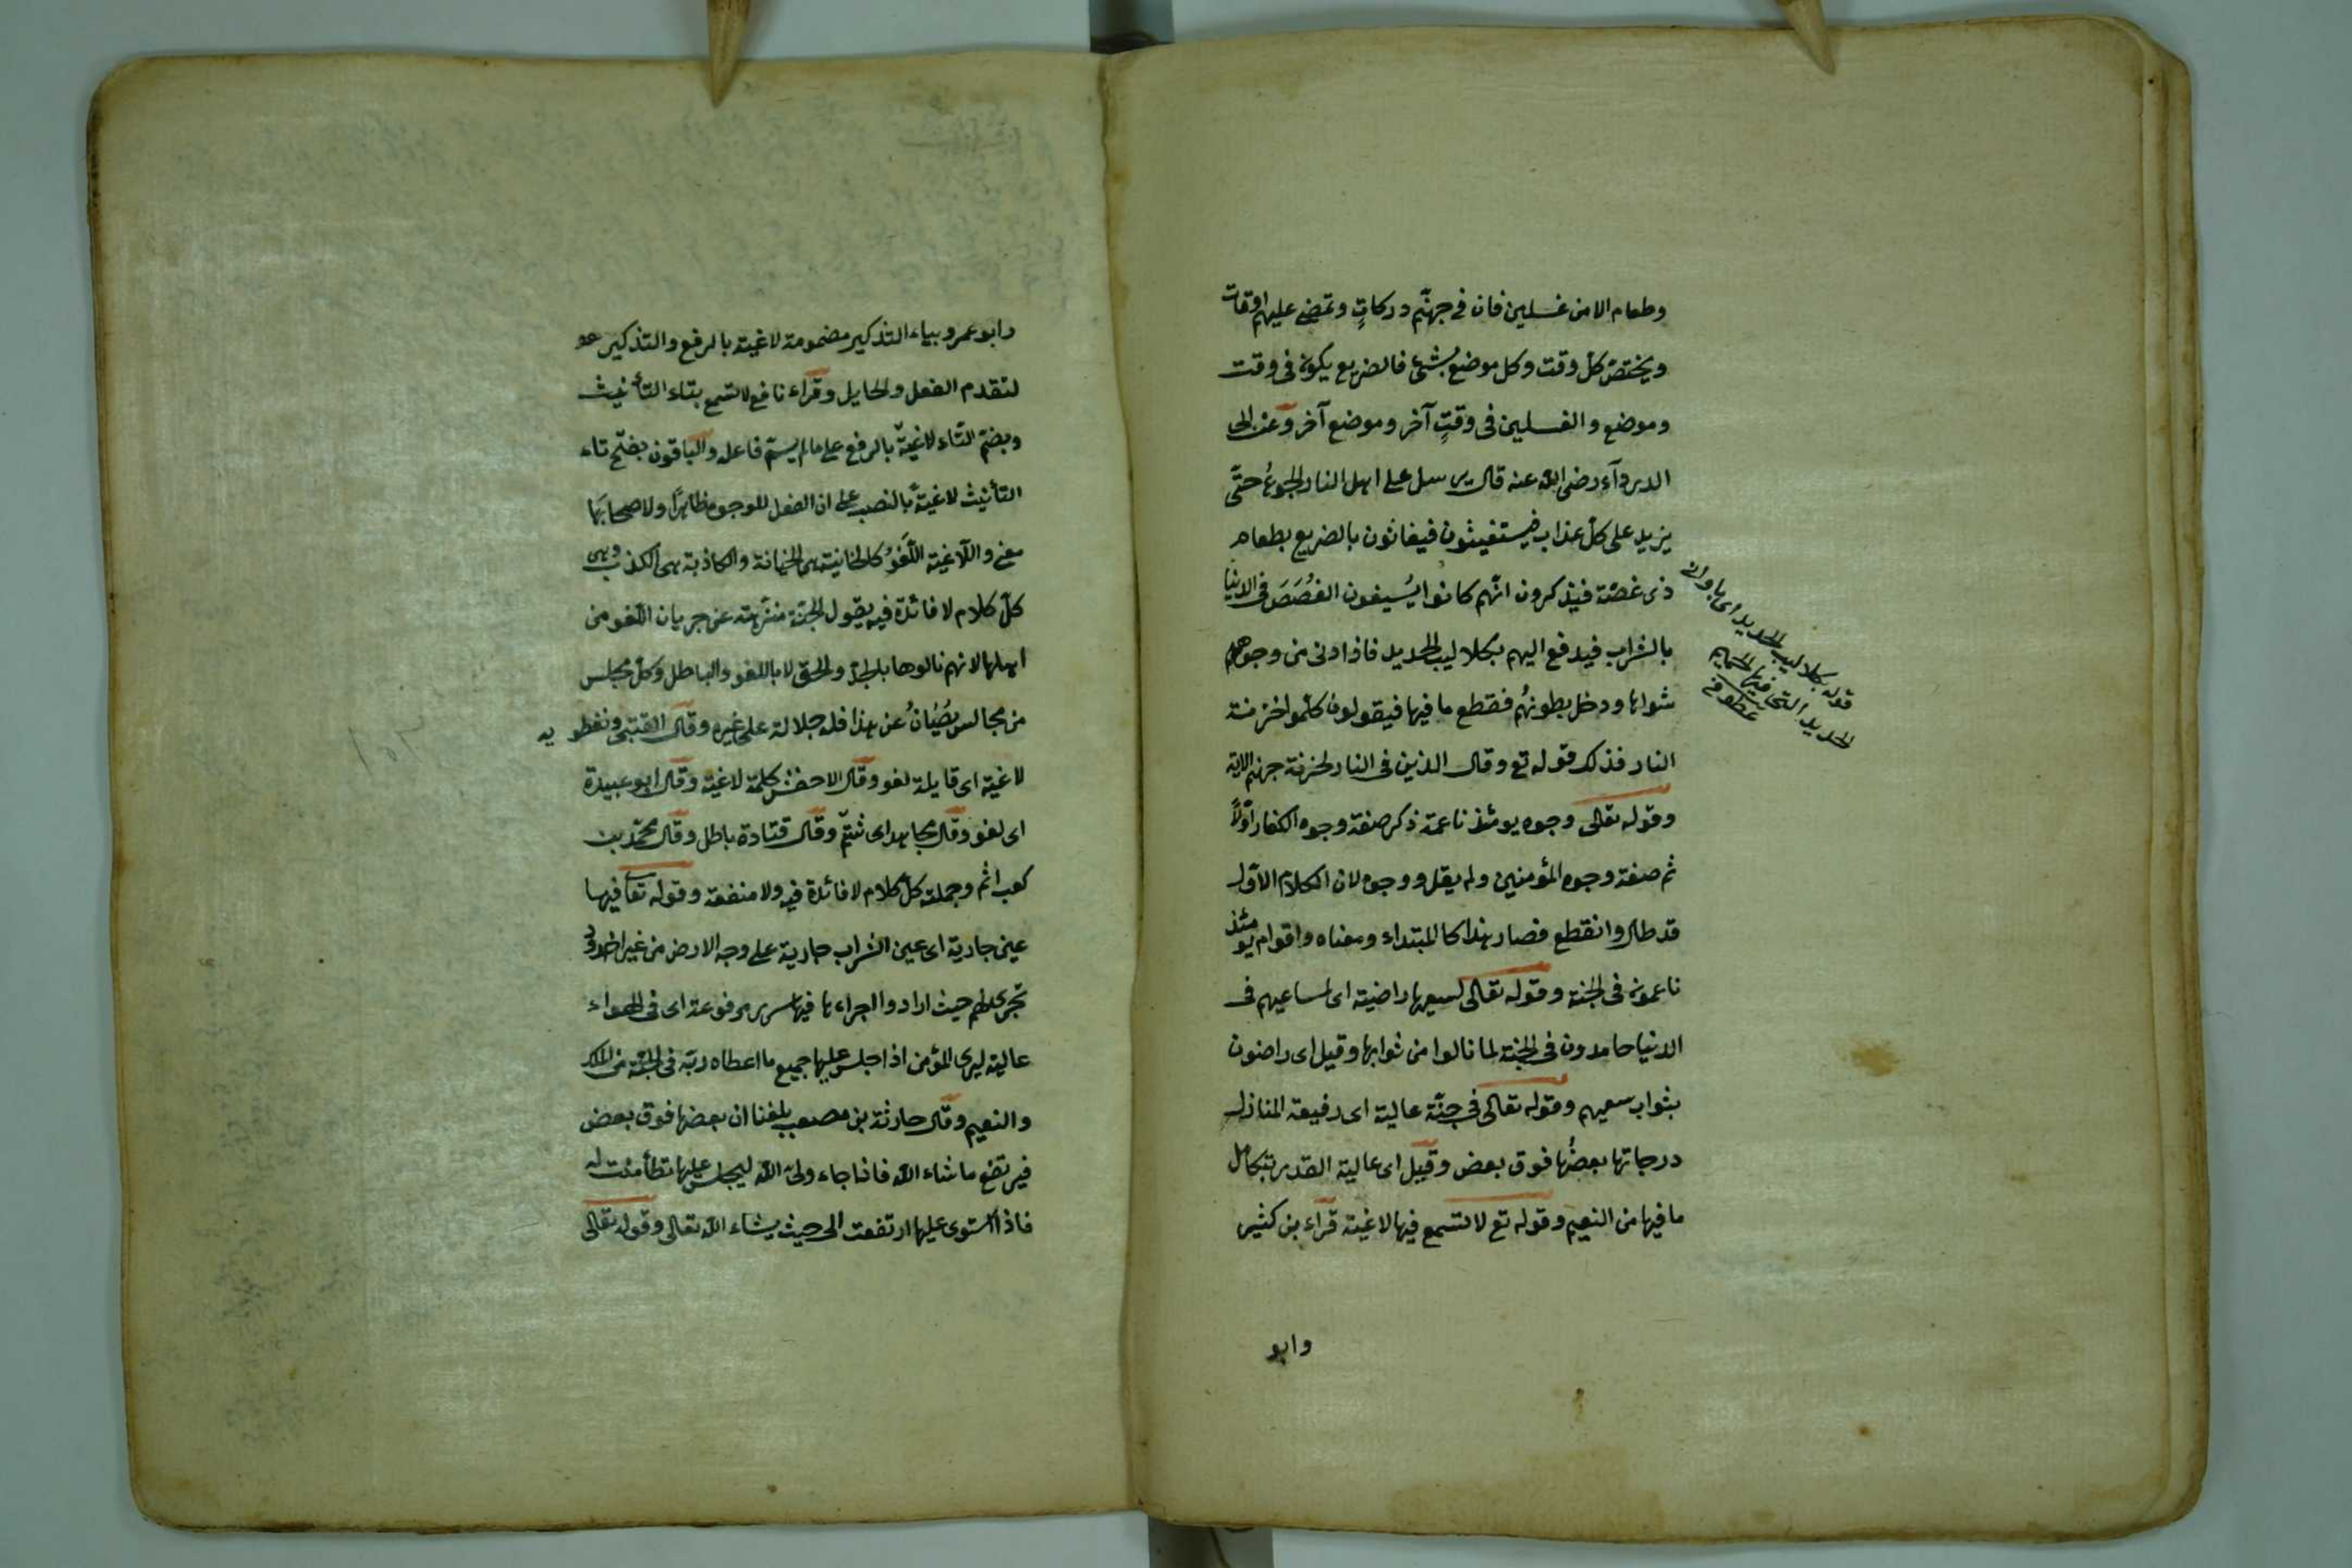 وطعام الا من غسلين فان فى جهنّم دركاتٍ وتمضى عليهم اوقات
ويختصّ كل وقت وكل موضع بشئ فالضريع يكون فى وقت
وموضع والغسلين فى وقتٍ آخر وموضع آخر وعن ابى
الدرداء رضى الله عنه قال يرسل على اهل النار الجوعُ حتّى
يزيد على كل عذاب فيستغيثون فيغاثون بالضريع بطعام
ذى غصّة فيذكرون انّهم كانوا يُسيغون الغُصَصَ فى الدنيا
بالشراب فيدفع اليهم بكلاليب الحديد فاذا دنى من وجوههم
شواها ودخل بطونهُم فقطع ما فيها فيقولون كلّموا خزنة
النار فذلك قوله تع وقال الذين فى النار لخزنة جهنم الاية
وقوله تعالى وجوه يومئذ ناعمة ذكر صفة وجوه الكفار اوّلاً
ثم صفة وجوه المؤمنين ولم يقل ووجوه لان الكلام الاوّل
قد طال وانقطع فصار هذا كالمبتداء ومعناه واقوام يومئذ
ناعمون فى الجنة وقوله تعالى لسعيها راضية اى لمساعيهم فى
الدنيا حامدون فى الجنة لما نالوا من ثوابها وقيل اى راضون
بثواب سعيهم وقوله تعالى فى جنّة عالية اى رفيعة المنازل
درجاتها بعضُها فوق بعض وقيل اى عالية القدر بتكامل
ما فيها من النعيم وقوله تع لا تسمع فيها لاغية قراء بن كثير
وابو
قوله بكلاليب الحديد اى باوانى
الحديد التى فيها الحميم
وابو عمرو بياء التذكير مضمومة لاغية بالرفع والتذكير
لتقدم الفعل والحايل وقراء نافع لا تسمع بتاء التأنيث
وبضمّ التاء لاغيةٌ بالرفع على ما لم يسمّ فاعله والباقون بفتح تاء
التأنيث لاغيةً بالنصب على ان الفعل للوجوه ظاهرًا ولاصحابها
معنى واللاغية اللَغْوُ كالخائنة هى الخيانة والكاذبة هى الكذب وهى
كلّ كلام لا فائدة فيه يقول الجنّة منزّهة عن جريان اللغو من
اهلها لانهم نالوها بالجدّ والحق لا باللغو والباطل وكلّ مجلس
من مجالس يُصَانُ عن هذا فله جلالة على غيره وقال القتبى ونفطويه
لاغية اى قايلة لغو وقال الاخفش كلمة لاغية وقال ابو عبيدة
اى لغو وقال مجاهد اى شتمّ وقال قتادة باطل وقال محمّد بن
كعب اثم وجملته كلّ كلام لا فائدة فيه ولا منفعة وقوله تعا فيها
عين جارية اى عين الشراب جارية على وجه الارض من غير اخدود
تجرى لهم حيث ارادوا اجراءها فيها سرر مرفوعة اى فى الهواء
عالية ليرى المؤمن اذا جلس عليها جميع ما اعطاه ربّه فى الجنّة من الملك
والنعيم وقال حارثة بن مصعب بلغنا ان بعضها فوق بعض
فيرتفع ما شاء الله فاذا جاء ولىّ الله ليجلس عليها تطأمنت له
فاذا استوى عليها ارتفعت الى حيث يشاء الله تعالى وقوله تعالى